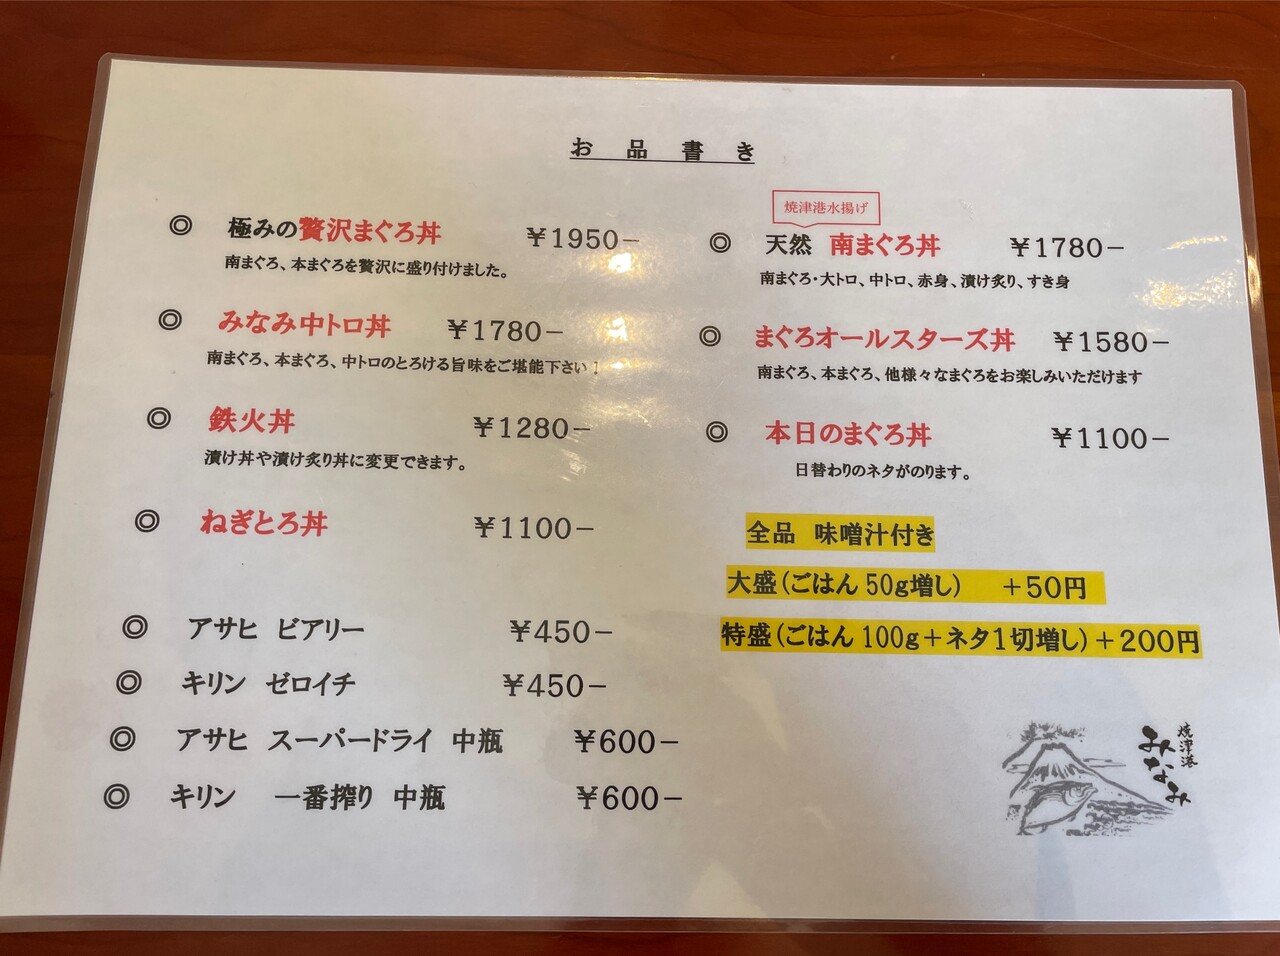 お品書き
◎ 極みの贅沢まぐろ丼 ￥1950−
南まぐろ、本まぐろを贅沢に盛り付けました。
◎ みなみ中トロ丼 ￥1780−
南まぐろ、本まぐろ、中トロのとろける旨味をご堪能下さい！
◎ 鉄火丼 ￥1280−
漬け丼や漬け炙り丼に変更できます。
◎ ねぎとろ丼 ￥1100−
◎ アサヒ ビアリー ￥450−
◎ キリン ゼロイチ ￥450−
◎ アサヒ スーパードライ 中瓶 ￥600−
◎ キリン 一番搾り 中瓶 ￥600−
焼津港水揚げ
◎ 天然 南まぐろ丼 ￥1780−
南まぐろ・大トロ、中トロ、赤身、漬け炙り、すき身
◎ まぐろオールスターズ丼 ￥1580−
南まぐろ、本まぐろ、他様々なまぐろをお楽しみいただけます
◎ 本日のまぐろ丼 ￥1100−
日替わりのネタがのります。
全品 味噌汁付き
大盛（ごはん50g増し） ＋50円
特盛（ごはん100g＋ネタ1切増し）＋200円
焼津港
みなみ